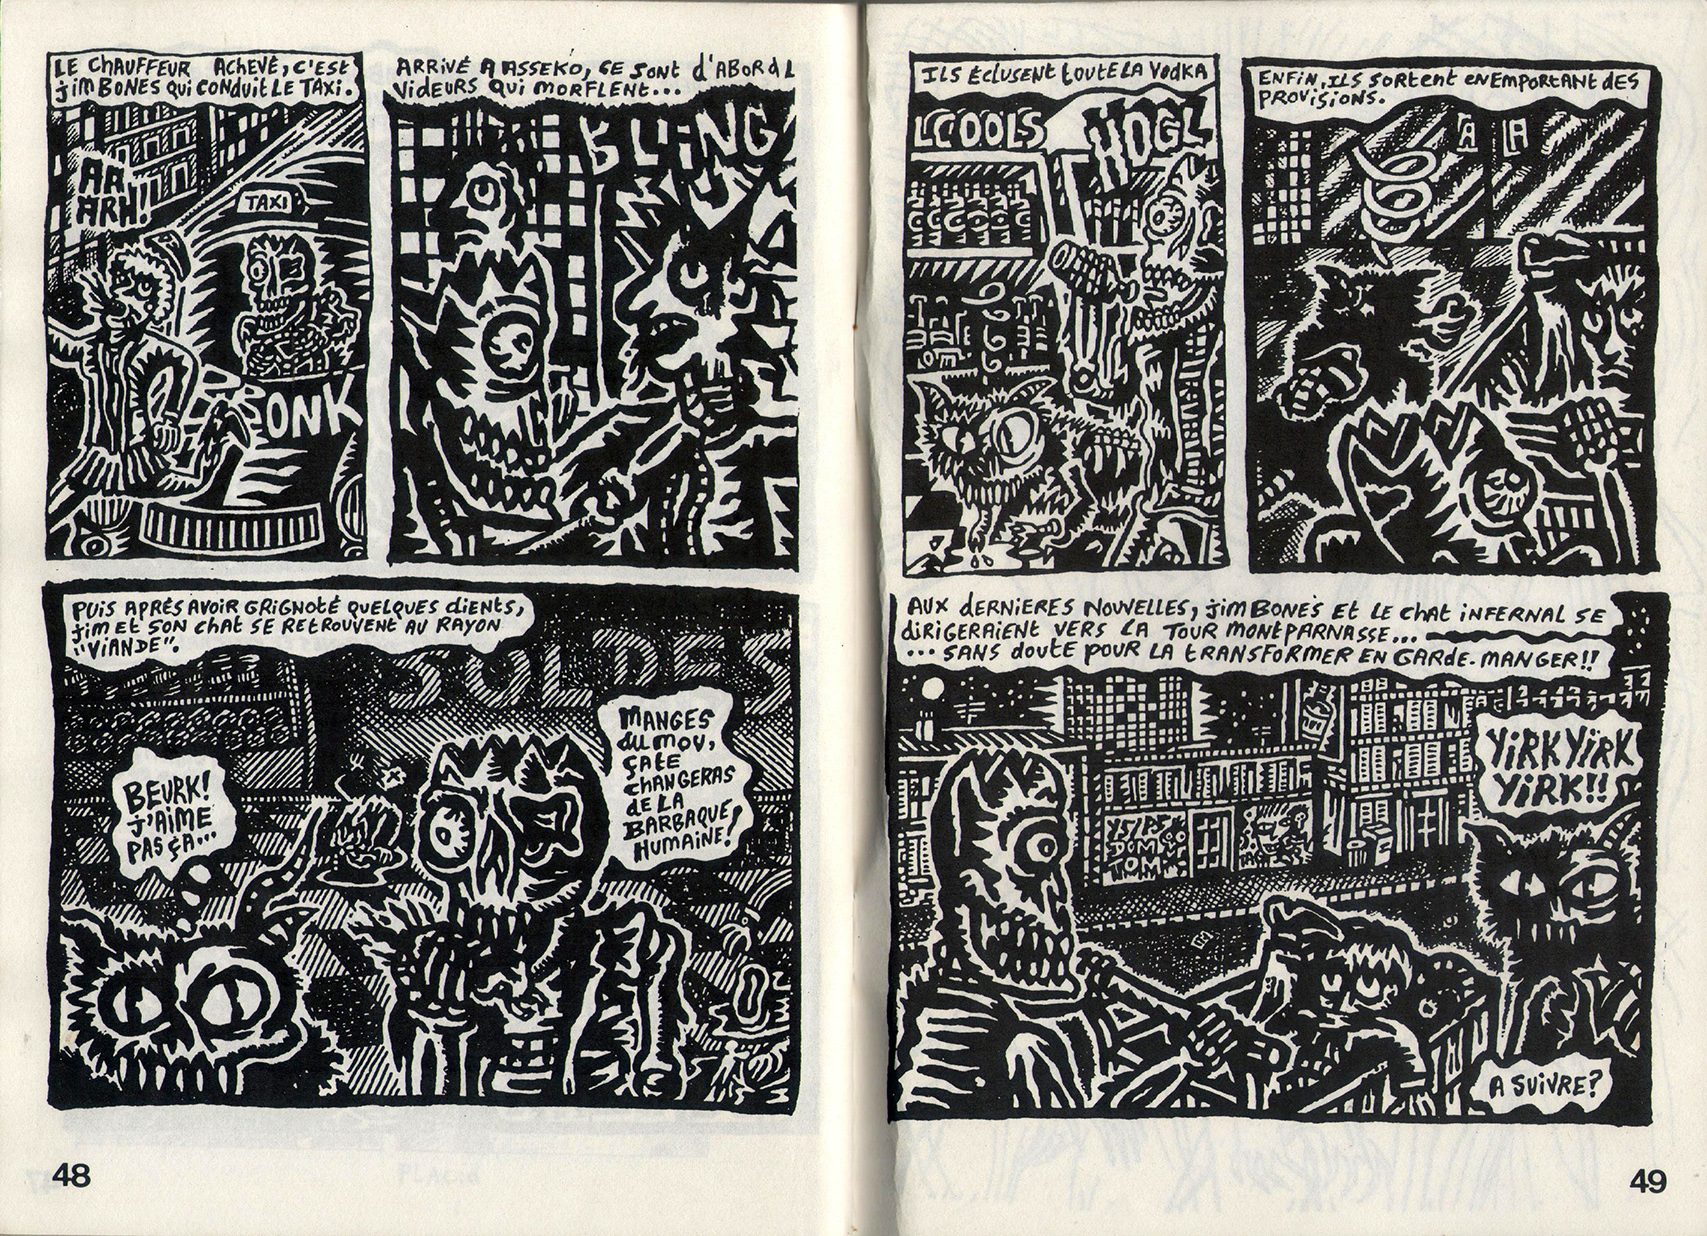 LE CHAUFFEUR ACHEVÉ, C'EST
JIM BONES QUI CONDUIT LE TAXI.
AA
ARH!
TAXI
ONK
ARRIVÉ A ASSEKO, CE SONT d'ABORd L
VIDEURS QUI MORFLENT...
BLING
PUIS APRÉS AVOIR GRIGNOTÉ QUELQUES CLIENTS,
JIM ET SON CHAT SE RETROUVENT AU RAYON
"VIANDE".
SOLDES
BEURK!
J'AIME
PAS ÇA...
MANGES
DU MOU,
ÇA TE
CHANGERAS
DE LA
BARBAQUE
HUMAINE!
48
PLACID
ILS ÉCLUSENT TOUTE LA VODKA
LCOOLS
HOGL
ENFIN, ILS SORTENT EN EMPORTANT DES
PROVISIONS.
AUX DERNIERES NOUVELLES, JIM BONES ET LE CHAT INFERNAL SE
DIRIGERAIENT VERS LA TOUR MONTPARNASSE...
... SANS DOUTE POUR LA TRANSFORMER EN GARDE-MANGER!!
YIRK YIRK
YIRK!!
DOM
TOM
A SUIVRE?
49